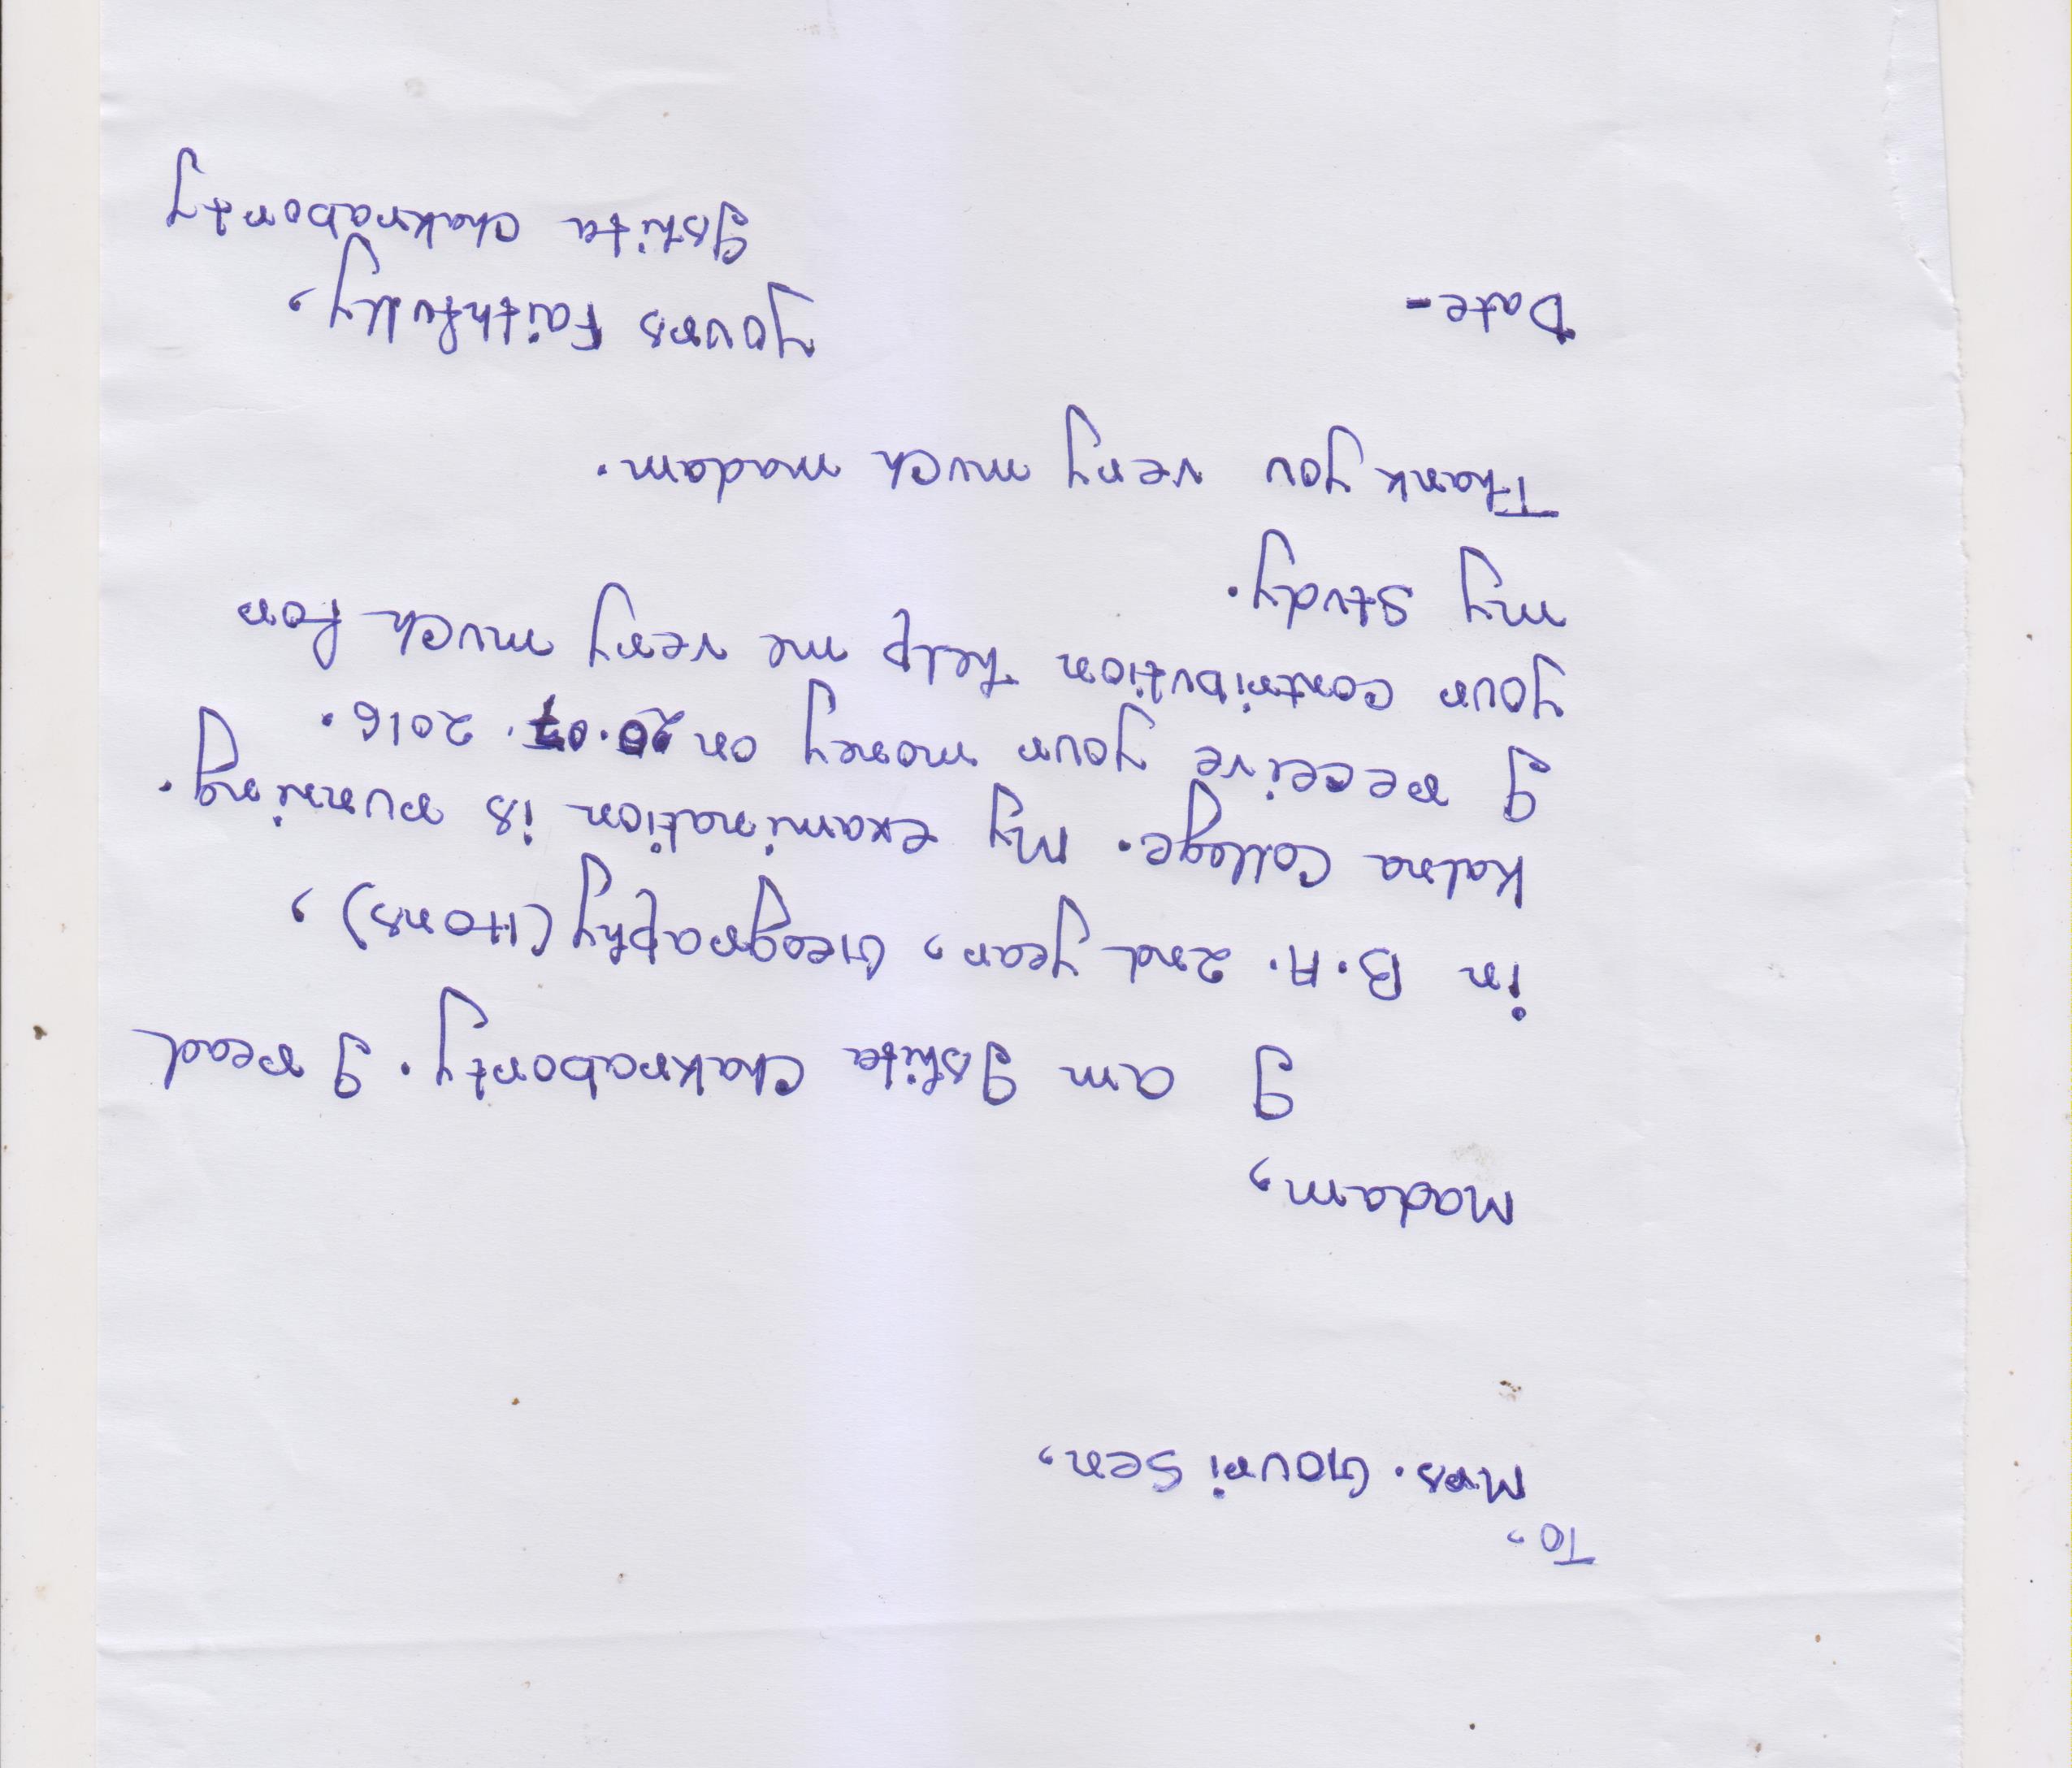 To,
Mrs. Gouri Sen,
Madam,
I am Ishita Chakraborty. I read
in B.A. 2nd year, Geography (Hons),
Kalna College. My examination is running.
I receive your money on 20.07.2016.
your contribution help me very much for
my study.
Thank you very much madam.
Date-
Yours Faithfully,
Ishita Chakraborty